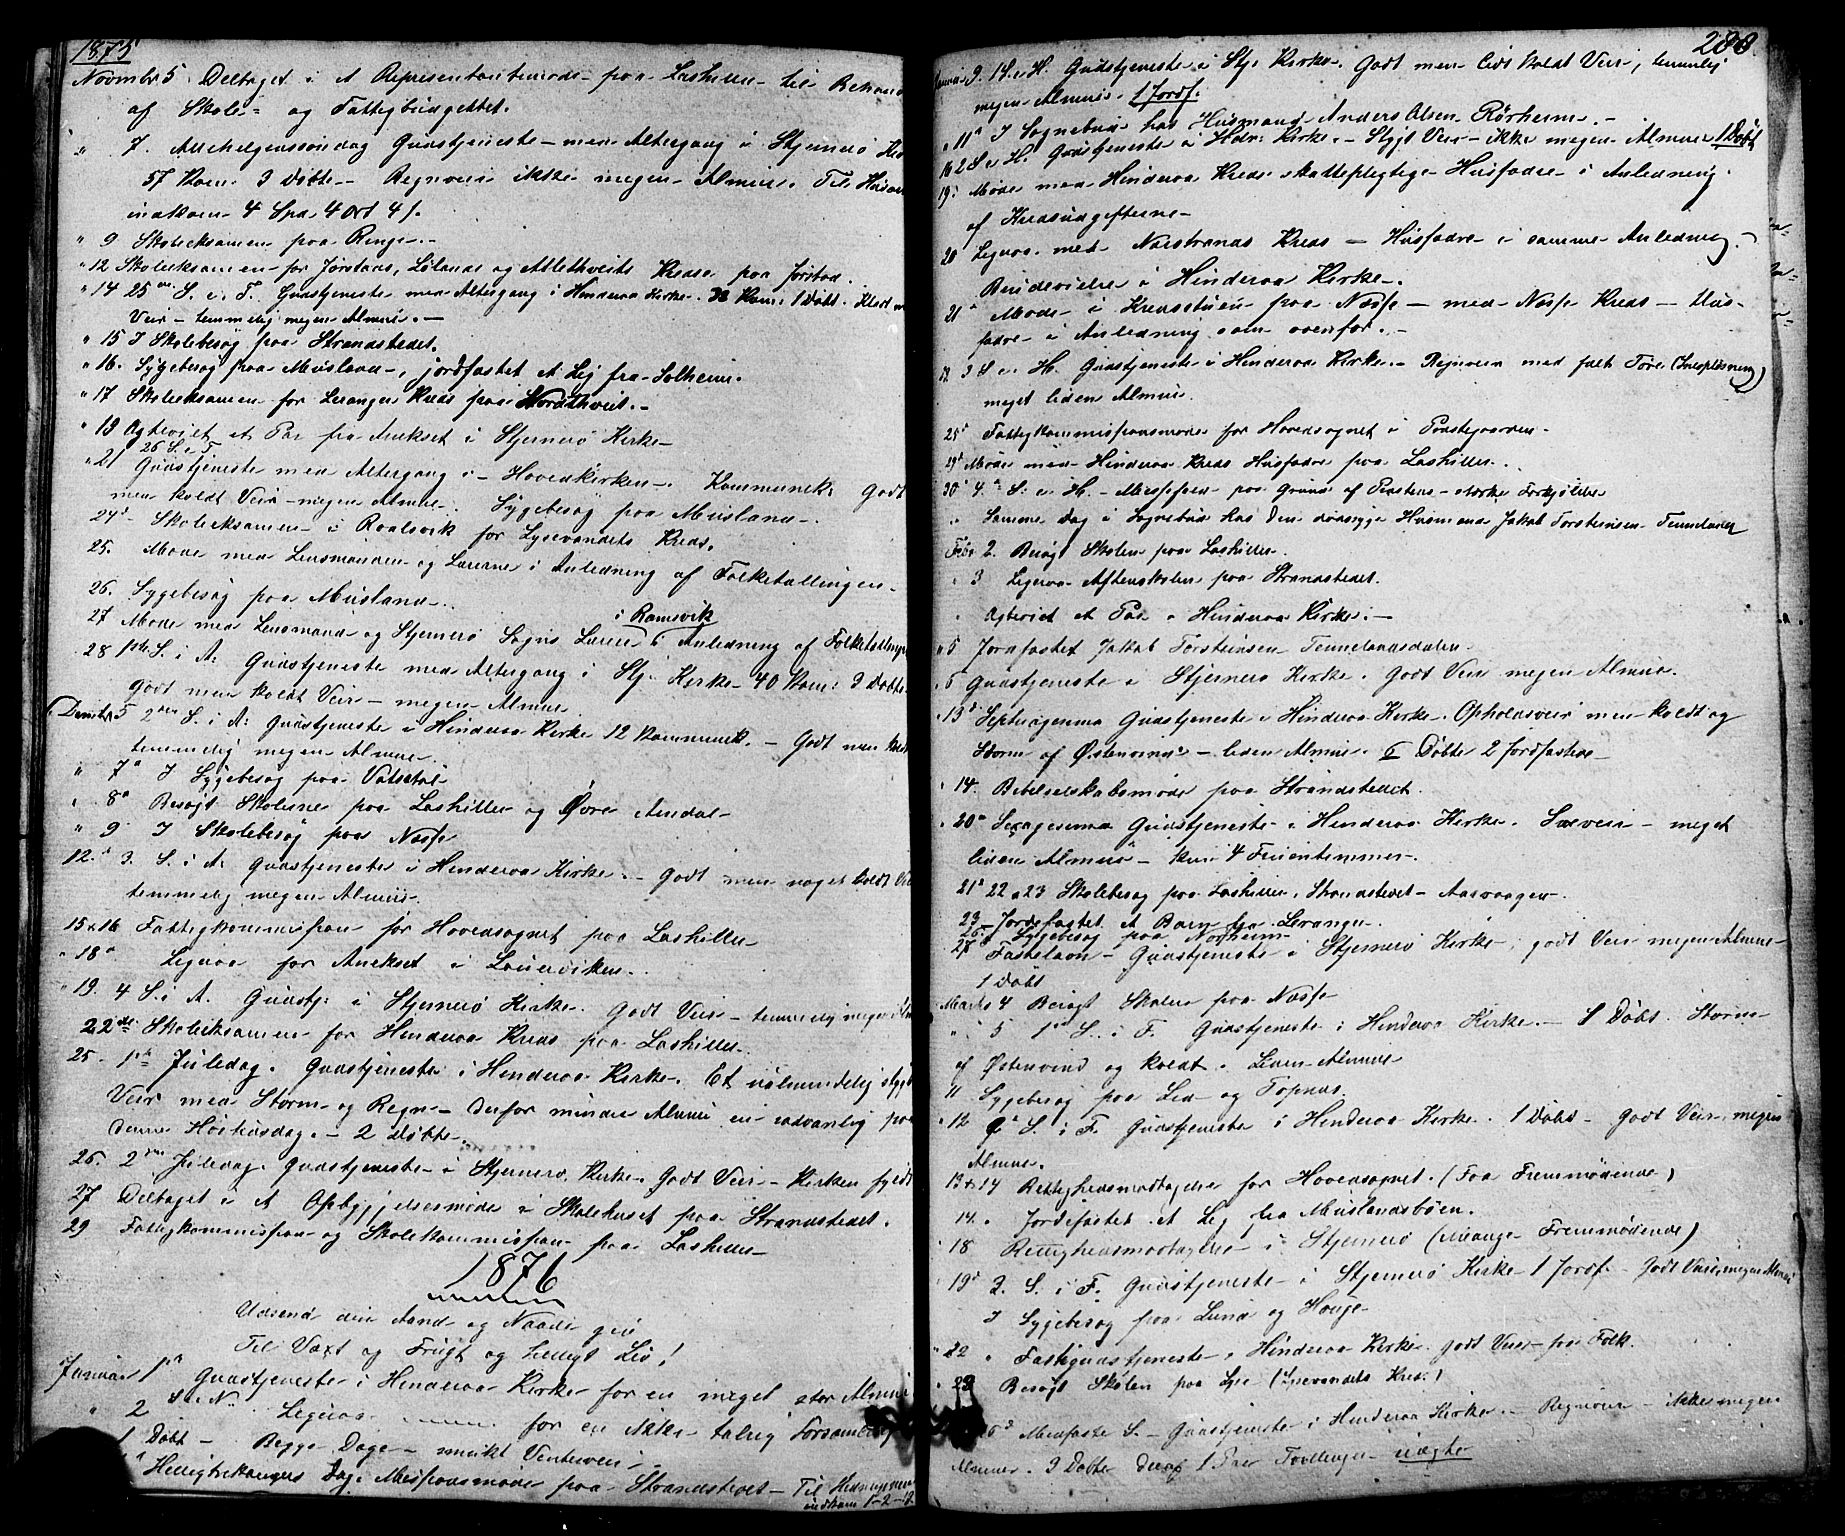 1875
Novmbr 5 Deltaget i et Representantmøde paa Lashiller til Behand
af Skole- og Fattigbudgettet.
" 7. Allehelgenssøndag Gudstjeneste med Altergang i Stjernerø Kir
57 Kom: 3 Døbte - Regnveir ikke megen Almue. Til
indkom 4 Spd. 4 Ort 4 /.
" 9 Skoleeksamen paa Ringe.-
" 12 Skoleeksamen for Jørstads, Lølands og Atlethveits Kredse paa Jørstad.
" 14 25de S. e. T. Gudstjeneste med Altergang i Hinderaa Kirke. 38 Kom: 1 Døbt. Klart
Veir - temmelig megen Almue. -
" 15 I Skolebesøg paa Strandstedet.
" 16. Sygebesøg paa Musland, jordfæstet et Lig fra Solheim.
" 17 Skoleeksamen for Leranger Kreds paa Nordthveit.-
" 19 Agteviet et Par fra Anekset i Stjernerø Kirke-
26 S. e. T.
" 21 Gudstjeneste med Altergang i Hovedkirken. Kommunik: Godt
men koldt Veir - megen Almue. Sygebesøg paa Musland.
24de Skoleeksamen i Roalsvik for Lysevandets Kreds.
25. Møde med Lensmanden og Lærerne i Anledning af Folketællingen-
26. Sygebesøg paa Musland.
i Ramsvik
27 Møde med Lensmand og Stjernerø Sogns Lærere i Anledning af Folketællingen
28 1ste S. i A: Gudstjeneste med Altergang i Stj. Kirke - 40 Kom: 3 Døbte
Godt men koldt Veir - megen Almue
Dembr 5 2den S. i A: Gudstjeneste i Hinderaa Kirke 12 Kommunik. - Godt men koldt
temmelig megen Almue.
" 7de I Sygebesøg paa Vatsetal
" 8de Besøgt Skolerne paa Lashiller og Øvre Amdal-
" 9 I Skolebesøg paa Næsse
12. 3. S. i A: Gudstjeneste i Hinderaa Kirke. - Godt men noget koldt
temmelig megen Almue.
15 & 16 Fattigkommission for Hovedsognet paa Lashiller
" 18de Ligesaa for Anekset i
" 19. 4 S. i A. Gudstj: i Stjernerø Kirke. Godt Veir - temmelig megen
22de Skoleeksamen for Hinderaa Kreds paa Lashiller.
25. 1ste Juledag. Gudstjeneste i Hinderaa Kirke. Et ualmindelig stygt
Veir med Storm og Regn - derfor mindre Almue end sædvanlig paa
denne Høitidsdag. - 2 Døbte.
26. 2den Juledag. Gudstjeneste i Stjernerø Kirke. Godt Veir - Kirken fyldt
27 Deltaget i et Opbyggelsesmøde i Skolehuset paa Strandstedet.
29 Fattigkommission og Skolekommission paa Lashiller
1876
Udsend din Aand og Naade giv
Til Væxt og Frugt og helligt Liv!
Januar 1ste Gudstjeneste i Hinderaa Kirke for en meget stor Almue
" 2 S. e. N. Ligesaa for en ikke talrig Forsamling
1 Døbt - Begge Dage - smukt Vinterveir.
Helligtrekongers Dag. Missionsmøde paa Strandstedet - Til
indkom 1-2-12

288
Januar 9. 1 S. e. H. Gudstjeneste i Stj. Kirke. Godt men lidt koldt Veir, temmelig
megen Almue. 1 Jordf.
" 11te I Sognebud hos Husmand Anders Olsen Rørheim.-
16 2 S. e. H. Gudstjeneste i Hdr. Kirke. - Stygt Veir - ikke megen Almue 1 Døbt
19: Møde med Hinderaa Kreds skattepligtige Husfædre i Anledning
af Kredsudgifterne-
20 Ligesaa med Næstrands Kreds - Husfædre i samme Anledning.
Brudevielse i Hinderaa Kirke.
21de Møde i Kredsstuen paa Næsse - med Næsse Kreds - Hus-
fædre i Anledning som ovenfor.-
3 S. e. H. Gudstjeneste i Hinderaa Kirke. - Regnveir med falt Føre (Sneopløsning)
meget liden Almue.
25de Fattigkommissionsmøde for Hovedsognet i Præstegaarden-
29de Møde med Hinderaa Kreds Husfædre paa Lashiller.
30te 4de S. e. H. - Messefald paa Grund af Præstens stærke Forkjølelse
" Samme Dag i Sognebud hos den dødssyge Husmand Jakob Torstensen Tunneland
Febr 2. Besøgt Skolen paa Lashiller.
" 3 Ligesaa Aftenskolen paa Strandstedet.
" Agteviet et Par i Hinderaa Kirke. -
" 5 Jordfæstet Jakob Torstensen
" 6 Gudstjeneste i Stjernerø Kirke. Godt Veir megen Almue.
" 13de Septuagesima Gudstjeneste i Hinderaa Kirke. Opholdsveir men koldt og
Storm af Østenvind - liden Almue. Døbte 2 Jordfæstede
" 14. Bibelselskabsmøde paa Strandstedet.
" 20de Sexagesima Gudstjeneste i Hinderaa Kirke. Snøveir - meget
liden Almue - kun 4 Fruentimmer.
21de 22 & 23 Skolebesøg paa Lashiller, Strandstedet - Aasvaagen
23 Jordfæstet et Barn fra Leranger.
26 Sygebesøg paa Norheim
27de Fastelavn - Gudstjeneste i Stjernerø Kirke, godt Veir megen Almue
1 Døbt
Marts 4 Besøgt Skolen paa Næsse
" 5 1ste S. i F. Gudstjeneste i Hinderaa Kirke. - 1 Døbt. Storm
af Østenvind og koldt. Liden Almue
11 Sygebesøg paa Lea og Topnæs.
" 12 2de S. i F. Gudstjeneste i Hinderaa Kirke. 1 Døbt - Godt Veir, megen
Almue.
13 & 14 Rettighedsmodtagelse for Hovedsognet. (Faa Fremmødende)
14. " Jordfæstet et Lig fra Muslandsbøen.
" 18 Rettighedsmodtagelse i Stjernerø (Mange Fremmødende)
" 19de 3. S. i F. Gudstjeneste i Stjernerø Kirke - 1 Jordf. - Godt Veir, megen Almue
I Sygebesøg paa Lund og Houge
" 22 " Fastegudstjeneste i Hinderaa Kirke. godt Veir - faa Folk.
" 23 Besøgt Skolen paa Lye (Lysevandets Kreds)
Midfaste S. - Gudstjeneste i Hinderaa Kirke. - Regnveir - ikke megen
Almue. 3 Døbte deraf 1 Par Tvillinger uægte